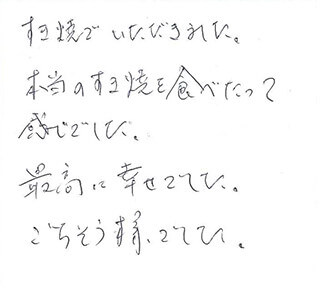 すき焼でいただきました。
本当のすき焼を食べたって
感じでした。
最高に幸せでした。
ごちそう様、でした。